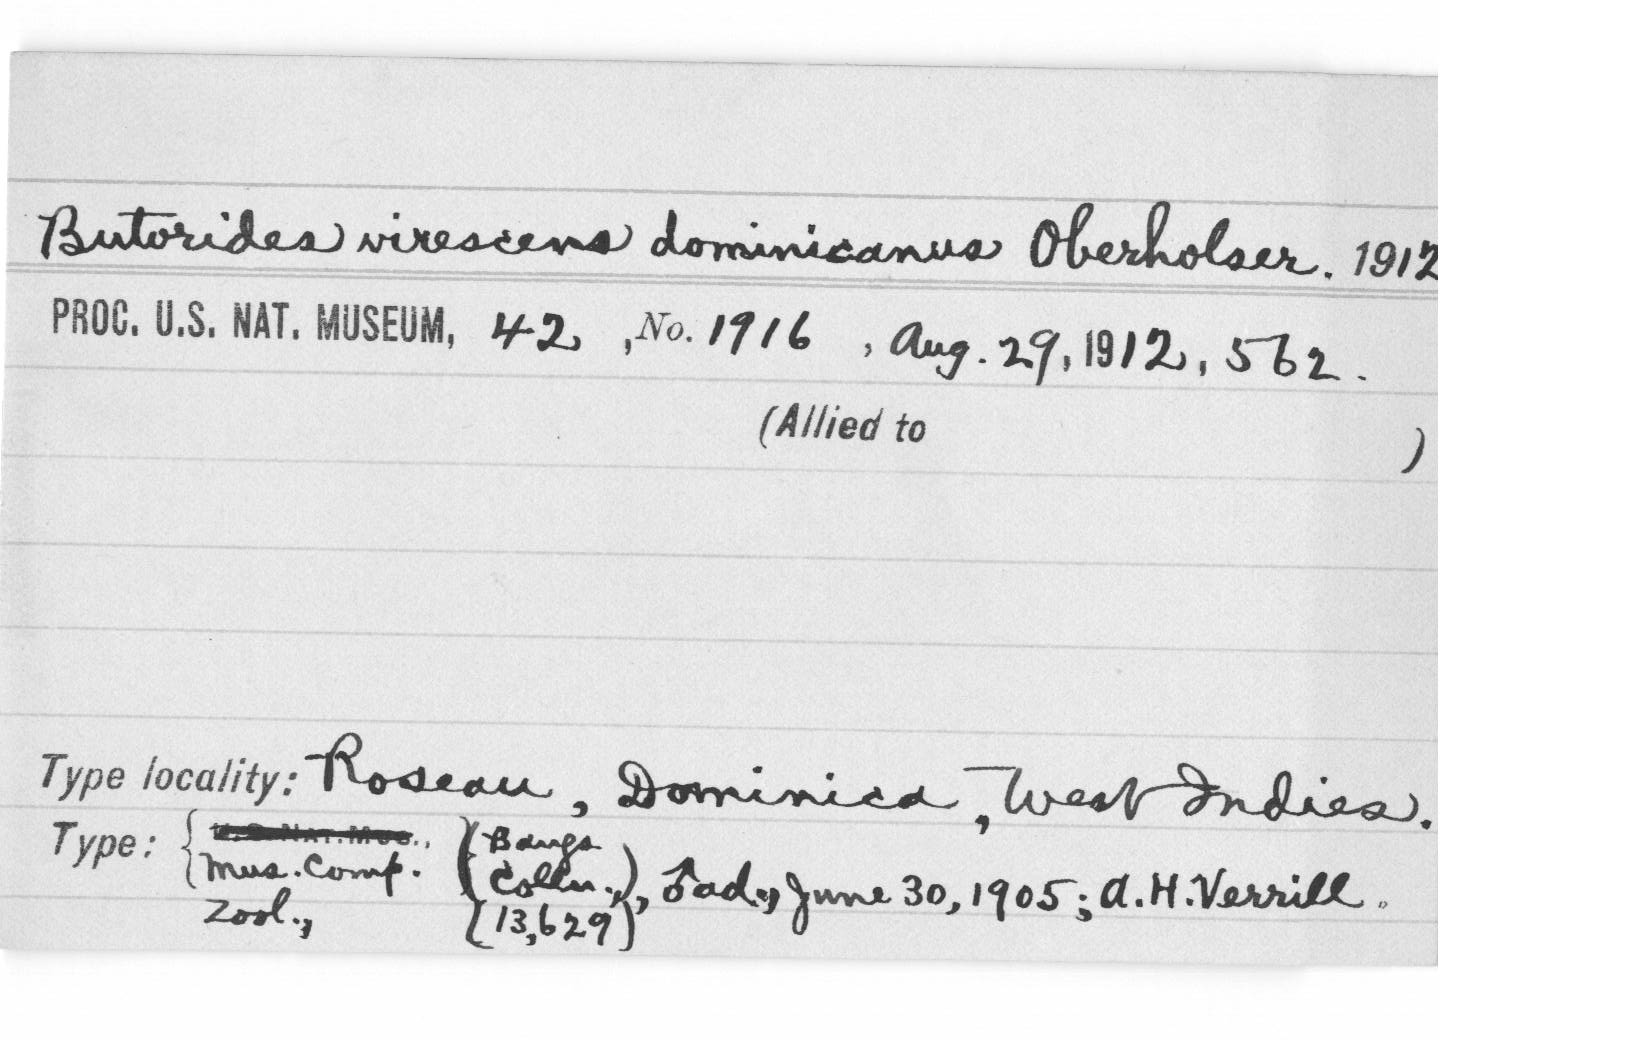 Butorides virescens dominicanus Oberholser. 1912
PROC. U.S. NAT. MUSEUM, 42, No. 1916, Aug. 29, 1912, 562.
(Allied to )
Type locality: Roseau, Dominica, West Indies.
Type: { U.S. NAT. MUS., (Bangs
Mus. Comp. Colln.), ♂ ad., June 30, 1905; A.H. Verrill.
Zool., (13,629)